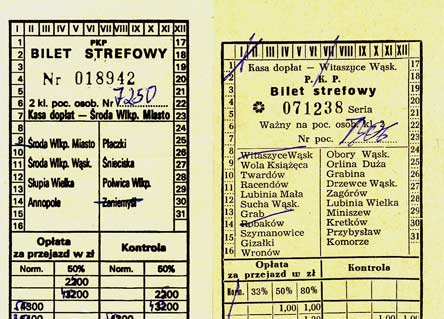 I II III IV V VI VII VIII IX X XI XII
PKP
BILET STREFOWY
Nr 018942
7250
2 kl. poc. osob. Nr
Kasa dopłat — Środa Wlkp. Miasto
Środa Wlkp. Miasto Płaczki
Środa Wlkp. Wąsk. Śnieciska
Słupia Wielka Polwica Wlkp.
Annopole Zaniemyśl
1
2
3
4
5
6
7
8
9
10
11
12
13
14
15
16
17
18
19
20
21
22
23
24
25
26
27
28
29
30
31
Opłata za przejazd w zł Kontrola
Norm. 50%
2200
4200 2200
4300 4200
I II III IV V VI VII VIII IX X XI XII
Kasa dopłat — Witaszyce Wąsk.
P. K. P.
Bilet strefowy
071238 Seria
Ważny na poc. osob. kl. 2
Nr poc.
Witaszyce Wąsk. Obory Wąsk.
Wola Książęca Orlina Duża
Twardów Grabina
Racendów Drzewce Wąsk.
Lubinia Mała Zagórów
Sucha Wąsk. Lubinia Wielka
Grab Miniszew
Robaków Kretków
Szymanowice Przybysław
Gizałki Komorze
Wronów
Opłata za przejazd w zł Kontrola
Norm. 33% 50% 80%
1,00 1,00
1,00 1,00